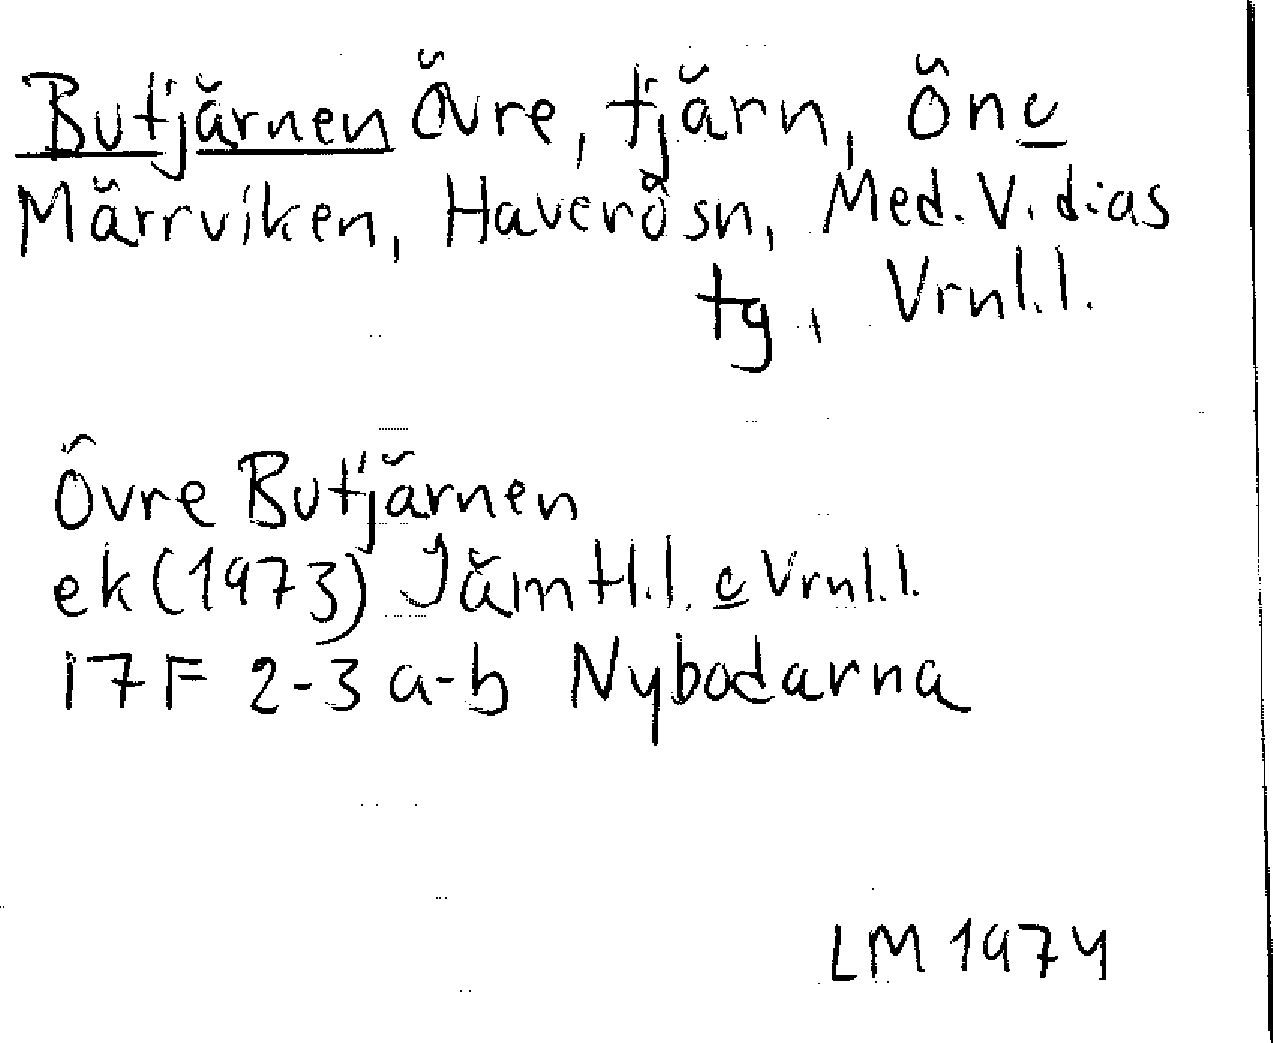 Butjärnen Övre, tjärn, önö
Märrviken, Haverö sn, Med. V. dias
tg, Vrnl.l.
Övre Butjärnen
ek (1973) JämtH.l. o Vrnl.l.
17F 2-3 a-b Nybodarna
LM 1974